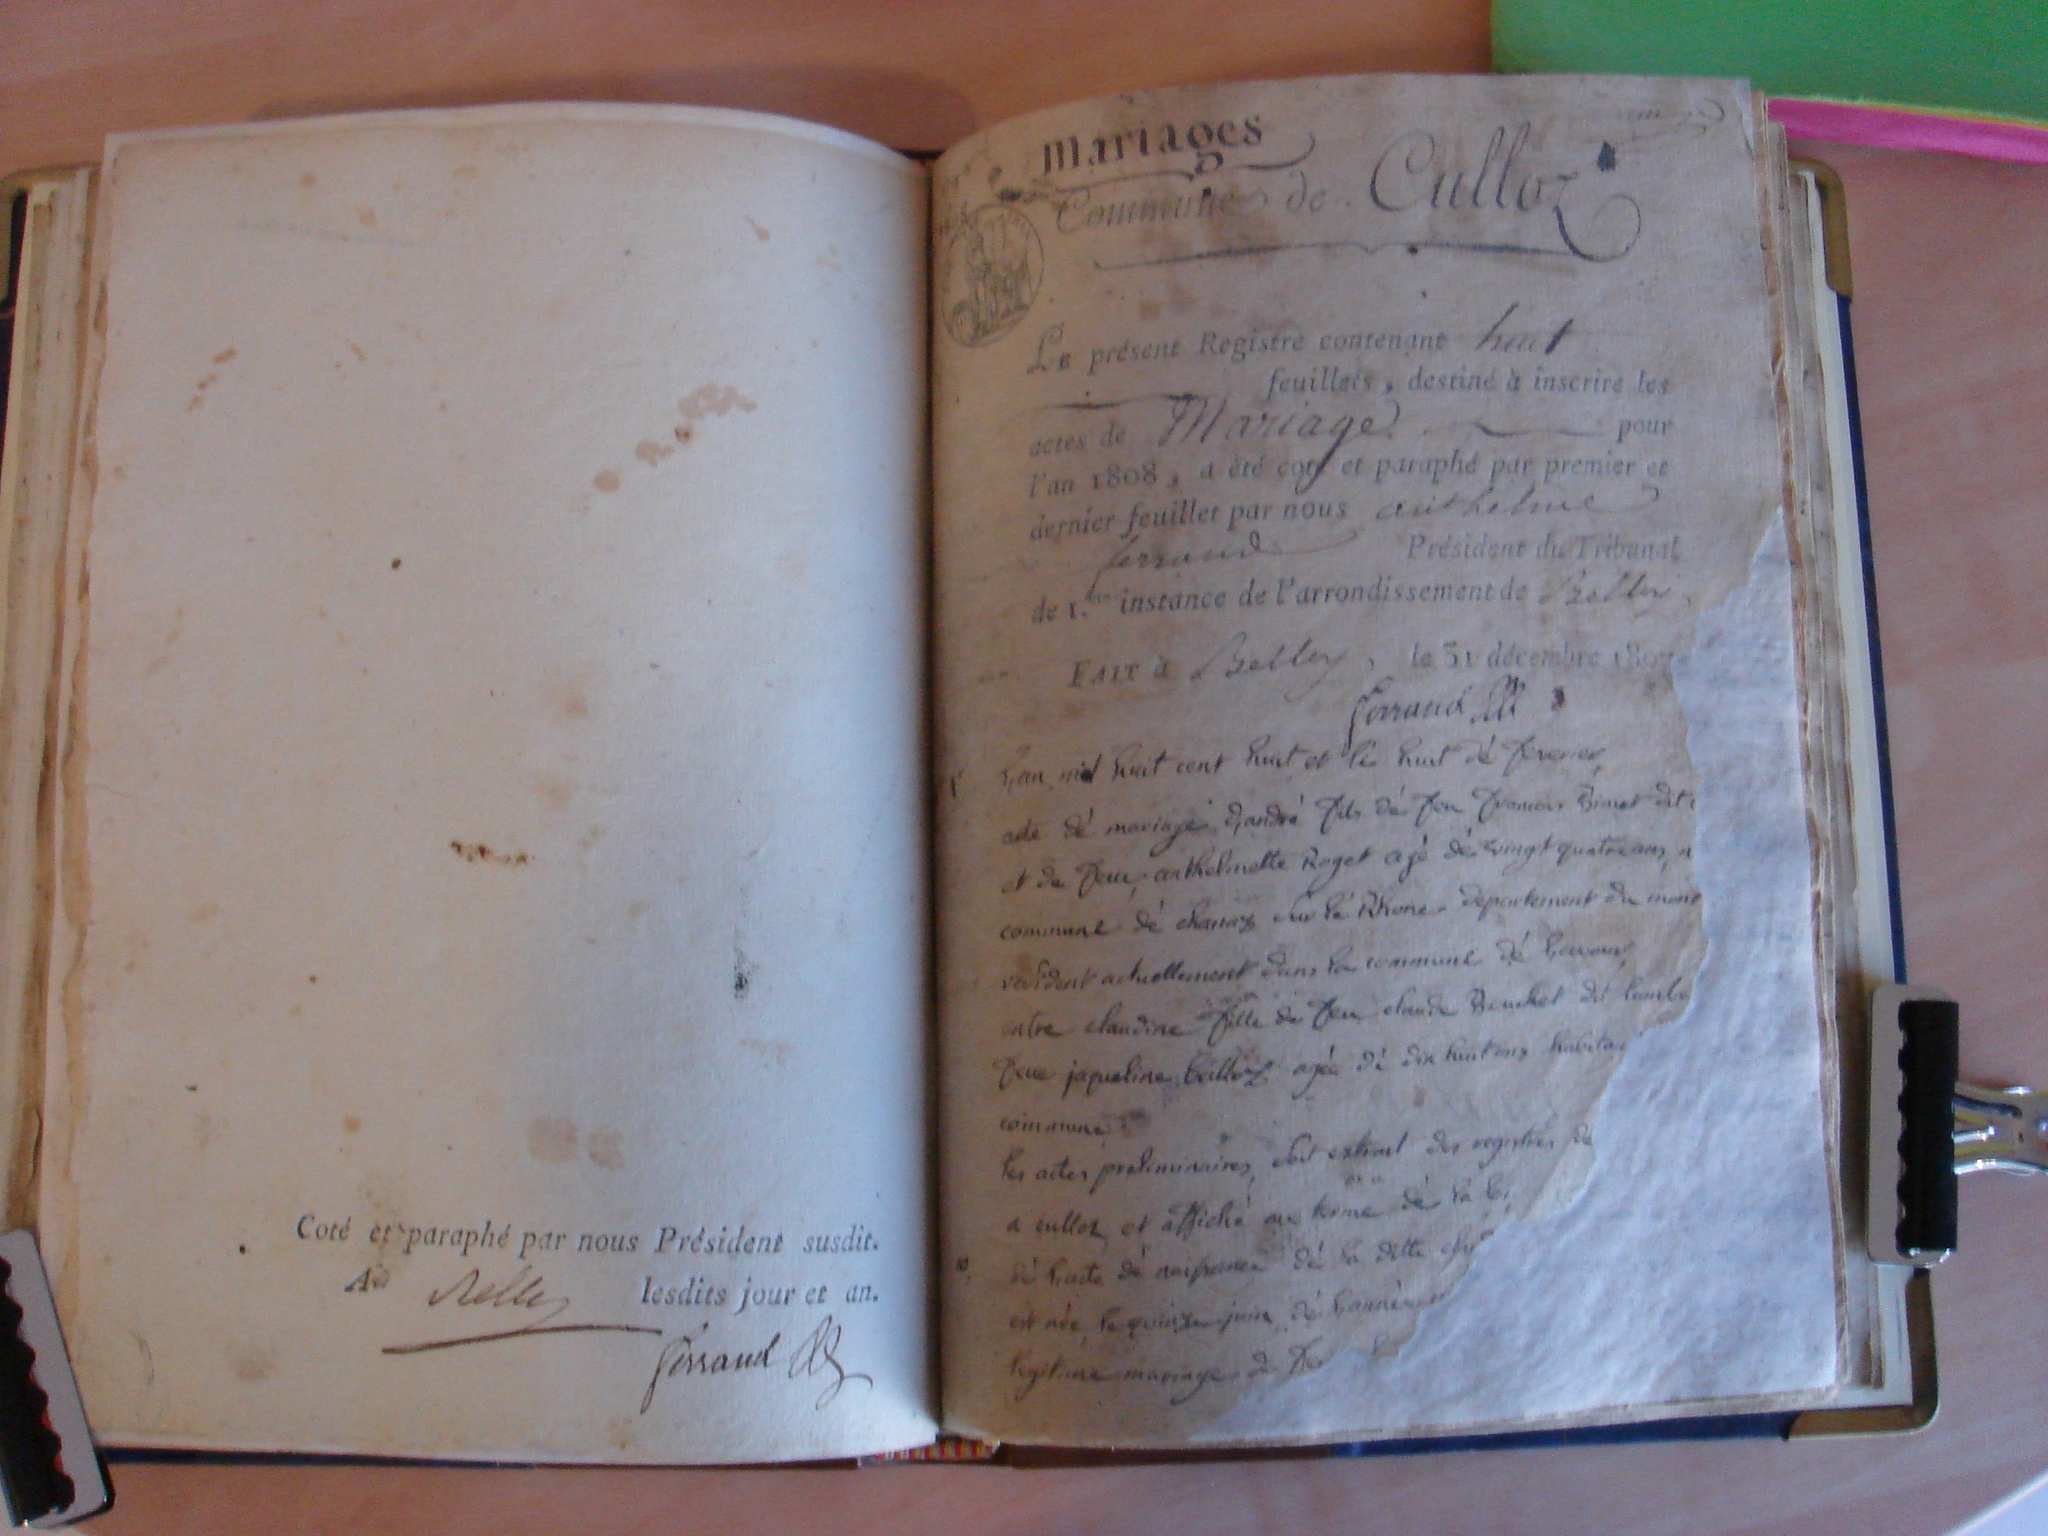 Coté et paraphé par nous Président susdit.
A Belley lesdits jour et an.
Ferrand
Mariages
Commune de Culloz
Le présent Registre contenant huit
feuillets, destiné à inscrire les
actes de Mariage pour
l'an 1808, a été coté et paraphé par premier et
dernier feuillet par nous anthelme
ferrand Président du Tribunal
de 1.ere instance de l'arrondissement de Belley,
FAIT à Belley, le 31 décembre 1807
Ferrand
L'an mil huit cent huit et le huit dé fevrier
acte dé mariage d'andré fils dé feu francois Bimet dit
et de feue anthelmette Roget agé dé vingt quatre ans,
commune dé chanaz sur lé Rhone departement du mont
résident actuellement dans la commune dé Lavour,
entre claudine fille de feu claude Bouchet dit
feue jaqueline agée dé dix huit ans
commune,
les actes preliminaires, soit extrait des registres de
a culloz et affiché au terme dé la
dé l'acte dé naissance dé la ditte
est née le quinze juin dé l'année
legitime mariage de